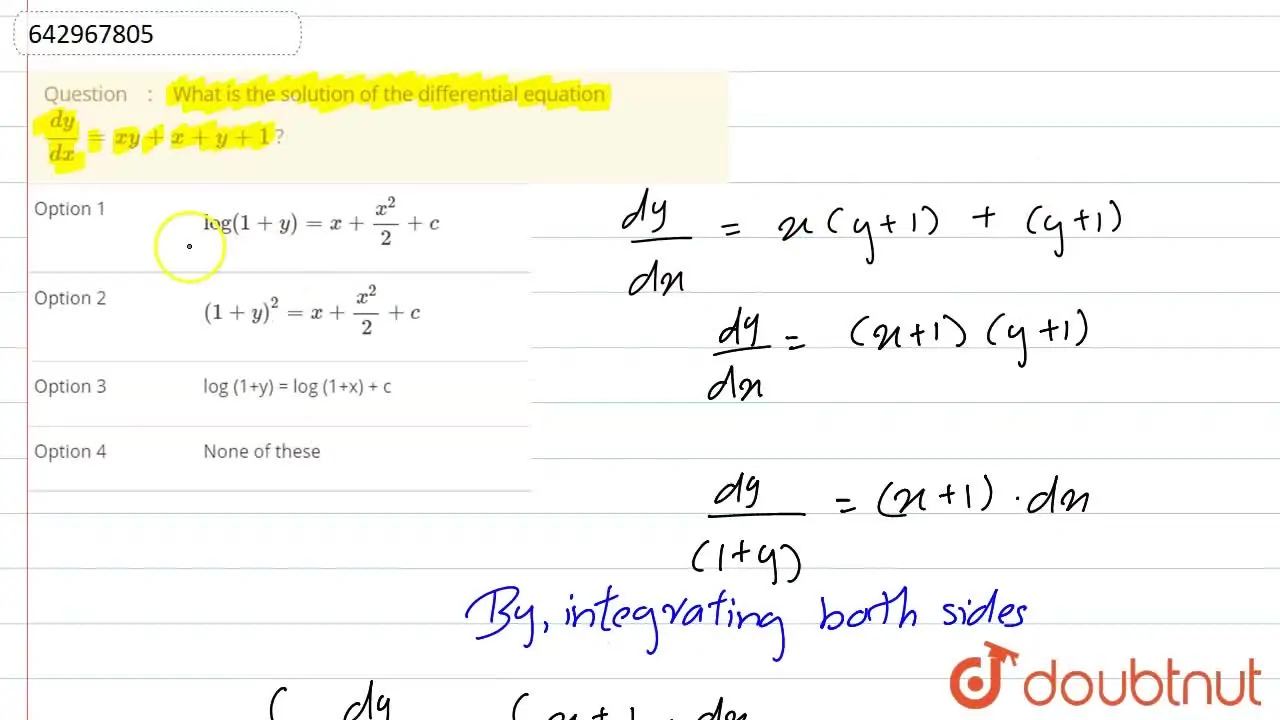 642967805
Question : What is the solution of the differential equation
dy/dx = xy + x + y + 1 ?
Option 1 log(1 + y) = x + x²/2 + c
Option 2 (1 + y)² = x + x²/2 + c
Option 3 log (1+y) = log (1+x) + c
Option 4 None of these
dy/dx = x(y+1) + (y+1)
dy/dx = (x+1) (y+1)
dy/(1+y) = (x+1) . dx
By, integrating both sides
∫ dy ∫ x+1 . dx
doubtnut